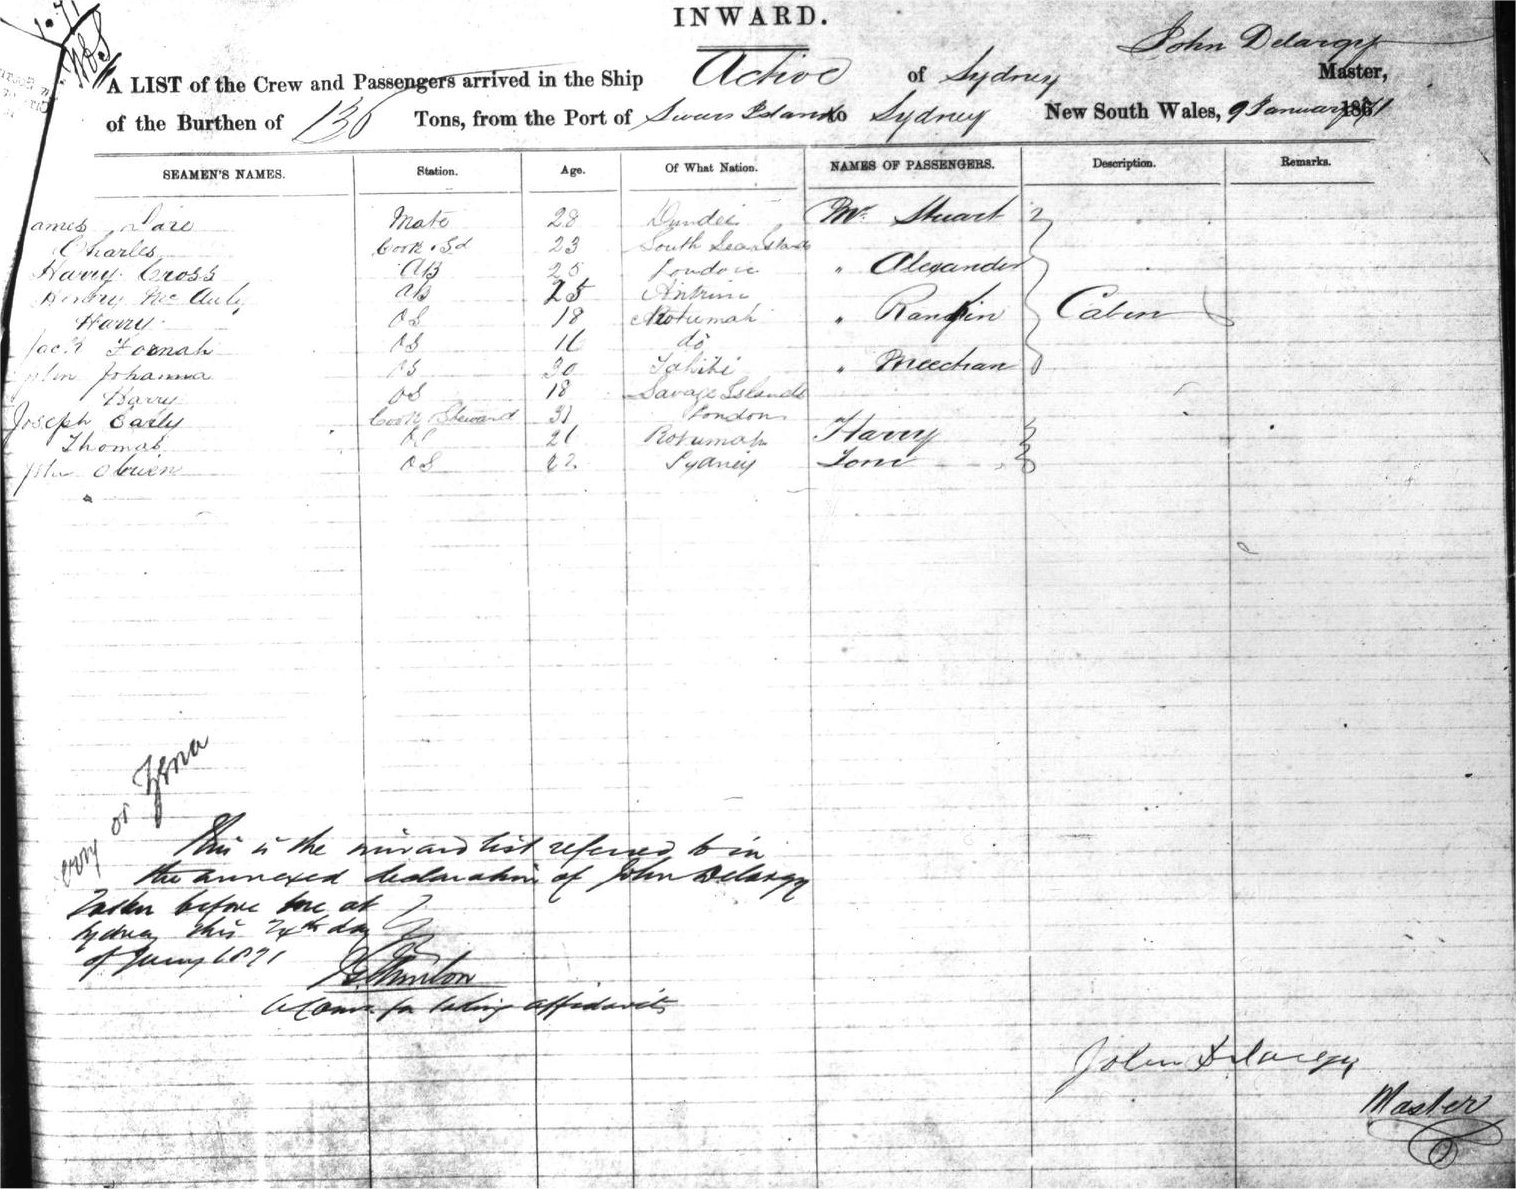 INWARD.
John Delargy
A LIST of the Crew and Passengers arrived in the Ship Active of Sydney Master,
of the Burthen of 136 Tons, from the Port of Swan Island to Sydney New South Wales, 9 January 1871
SEAMEN'S NAMES. Station. Age. Of What Nation. NAMES OF PASSENGERS. Description. Remarks.
ames Mate 28 Dundee Mr. Stuart
Charles Cook & Sd 23 South Sea Islands
Harry Cross AB 25 London " Alexander
Henry Mc Auly AB 25 Antrim
Harry OS 18 Rotumah " Rankin Cabin
Jack Foonah OS 16 do
John Johanna OS 30 Tahiti " Meechan
Harry OS 18 Savage Islands
Joseph Early Cook & Steward 31 London
Thomas OS 26 Rotumah Harry
John Owen OS 22 Sydney Tom
This is the inward list referred to in
the annexed declaration of John Delargy
Taken before me at
Sydney this 24th day
of Jany 1871
A Comr. for taking affidavits
John Delargy
Master